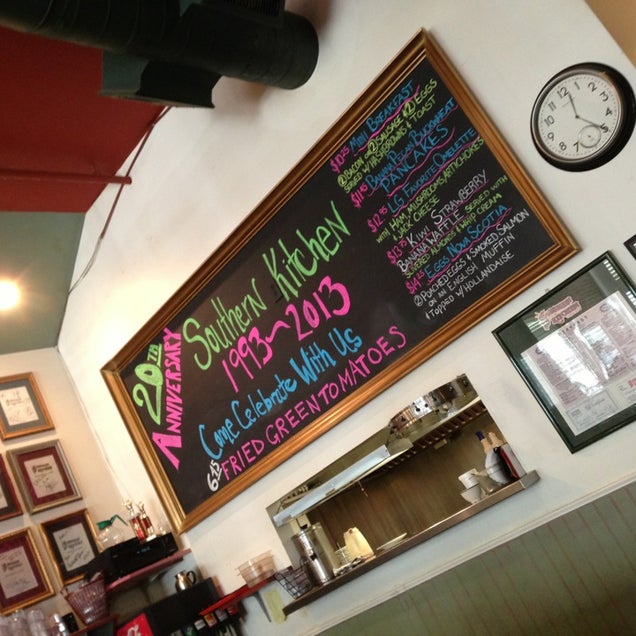 20TH
ANNIVERSARY
SOUTHERN KITCHEN
1993~2013
Come Celebrate With Us
6.95 FRIED GREEN TOMATOES
$10.25 MINI BREAKFAST
② BACON OR ② SAUSAGE ② EGGS
SERVED W/ HASHBROWNS & TOAST
$11.95 BANANA PECAN BUCKWHEAT
PANCAKES
$12.95 LG FAVORITE OMELETTE
WITH HAM, MUSHROOMS, ARTICHOKES
& JACK CHEESE
$13.75 KIWI STRAWBERRY
BANANA WAFFLE SERVED WITH
SLIVERED ALMONDS & WHIP CREAM
$14.25 EGGS NOVA SCOTIA
② POACHED EGGS & SMOKED SALMON
ON AN ENGLISH MUFFIN
& TOPPED W/ HOLLANDAISE